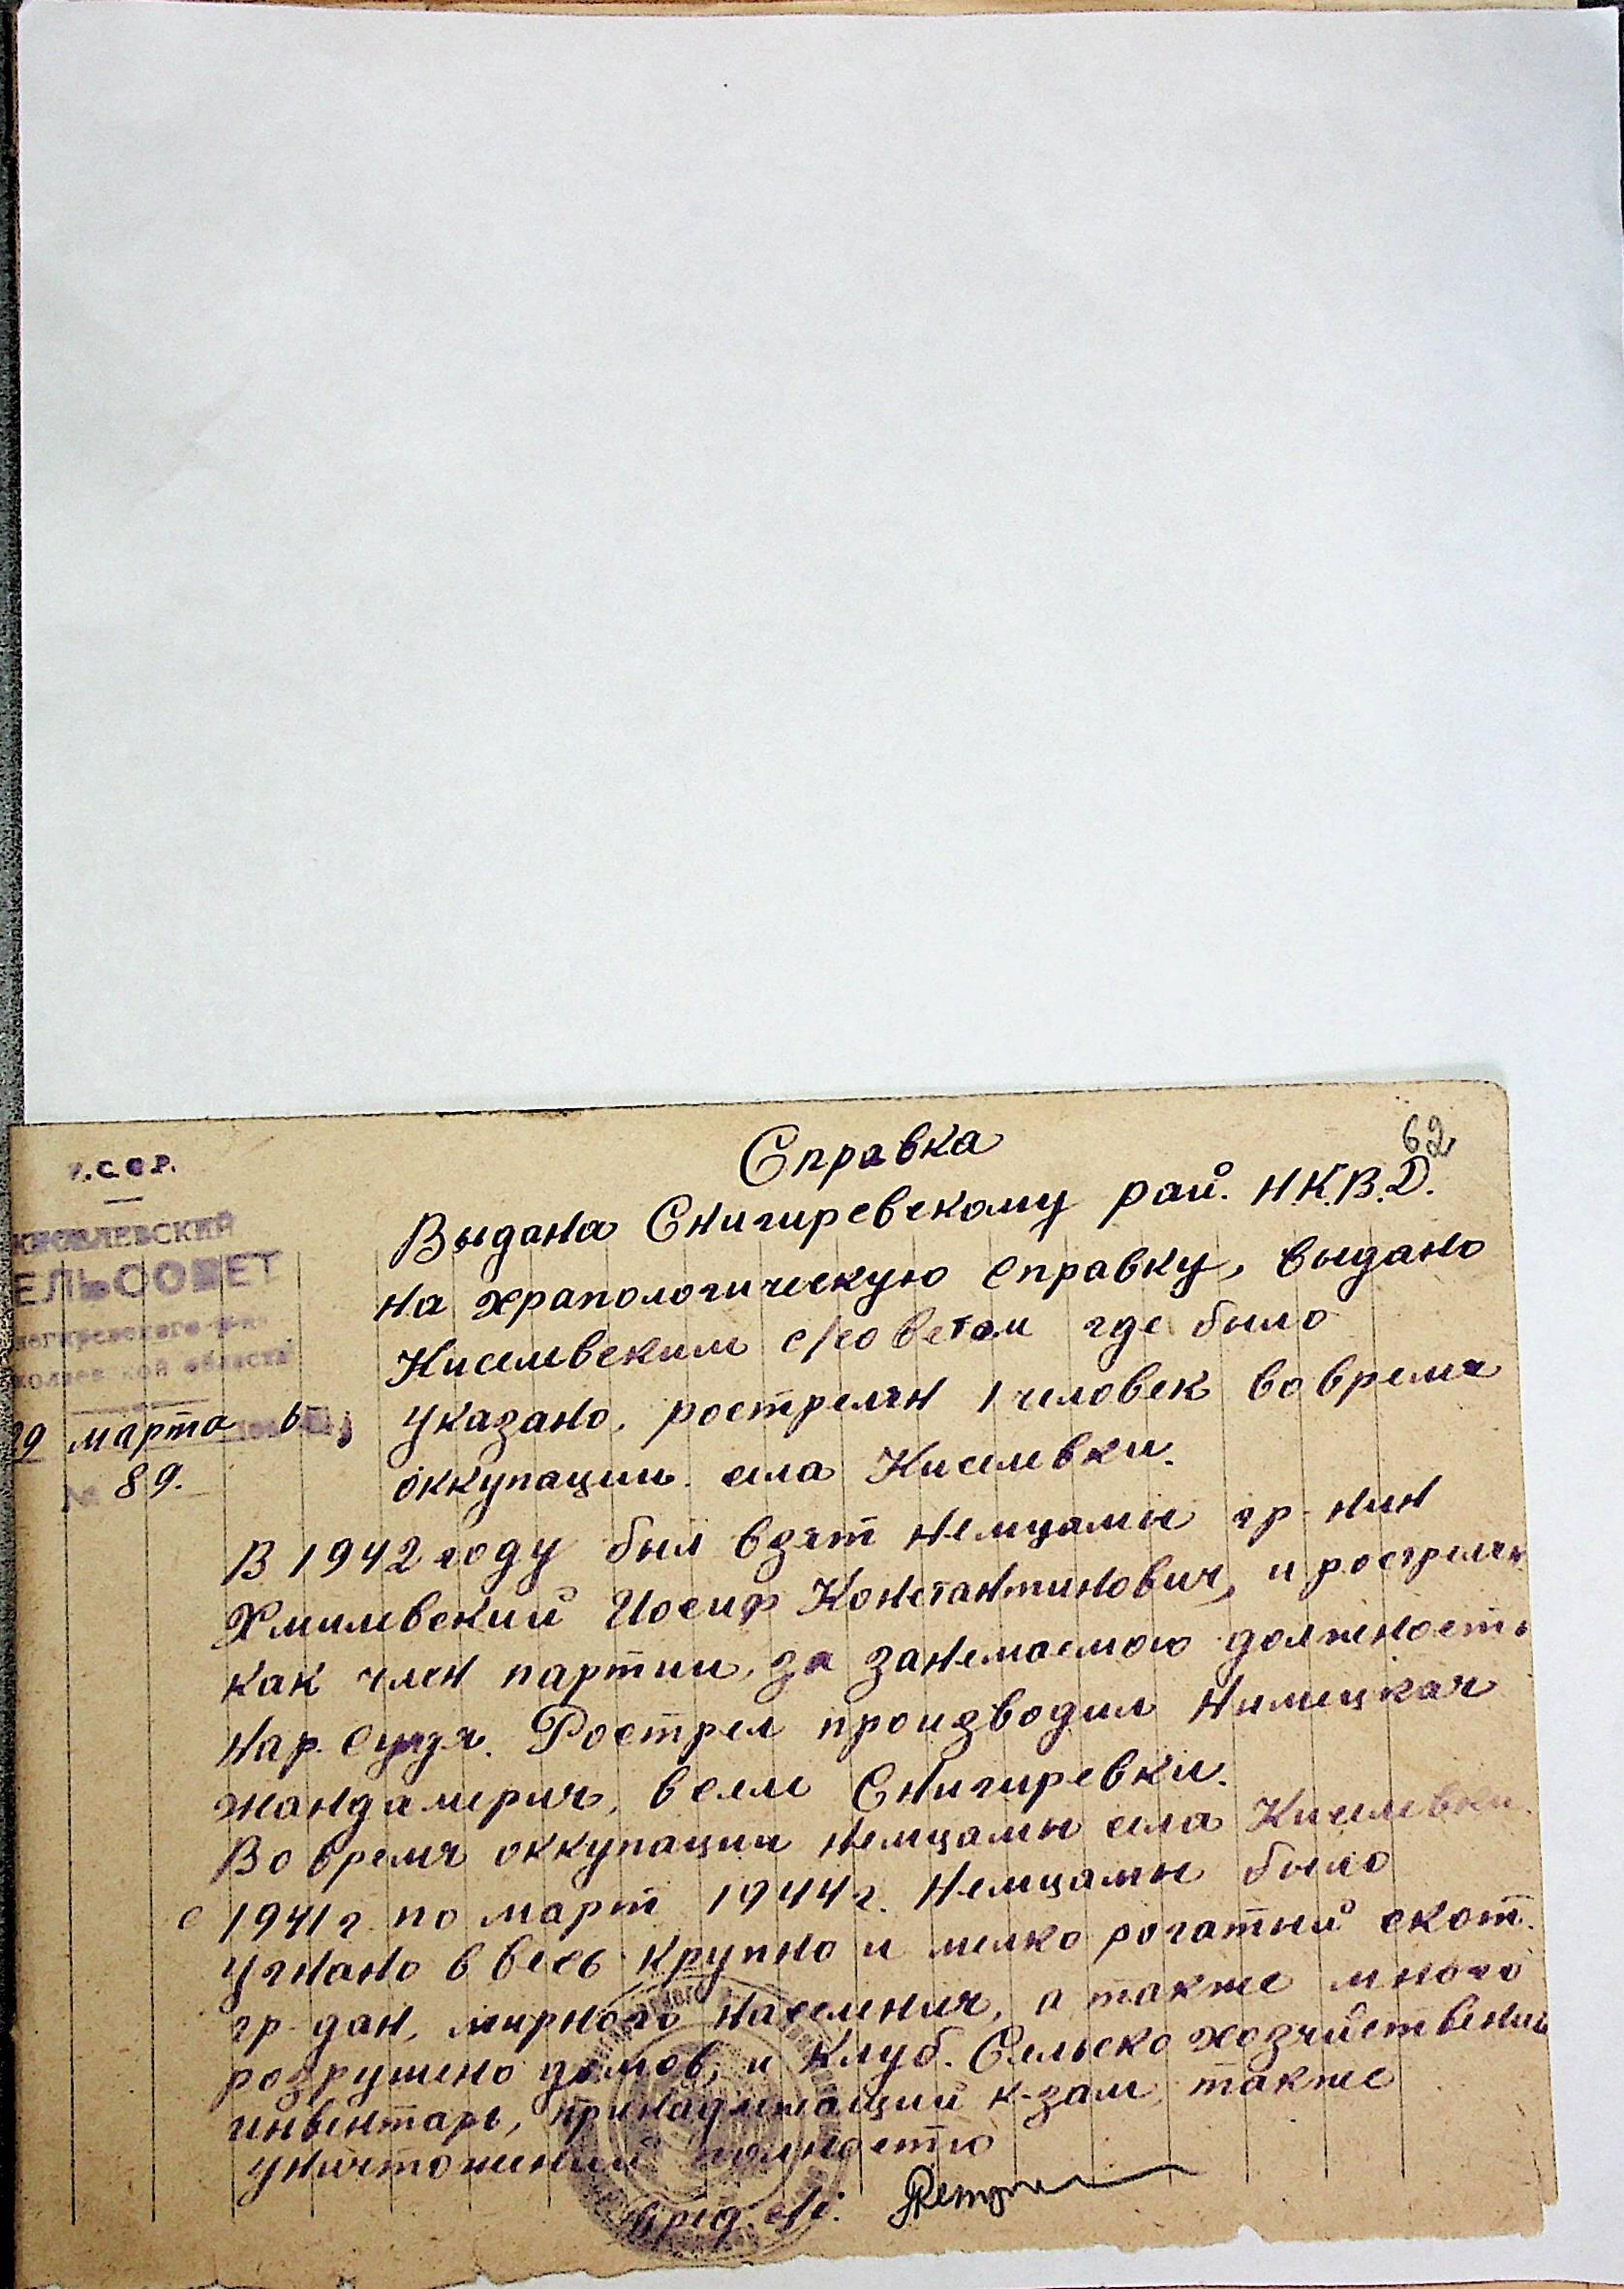 62
Справка
У.С.С.Р.
Выдана Снигиревскому рай. Н.К.В.Д.
на храпологическую справку, выдано
Киселевским с/советам где было
указано, рострелян 1 человек во время
оккупации села Киселевки.
ЕЛЬСОВЕТ
29 марта
№ 89.
В 1942 году был взят немцами гр-нин
Хмилевский Иосиф Константинович, и рострелян
как член партии, за занемаемою должность
нар. судя. Рострел производил нимицкая
жандамерия, в селе Снигиревки.
Во время оккупации немцамы села Киселевки.
с 1941 г. по март 1944 г. немцамы было
угнано ввесь крупно и мелко рогатый скот.
гр-дан, мирного населения, а также много
розрушено домов, и клуб. Сельско хозяйствений
инвентарь, принадлежащий к-зам, также
уничтожений полностю
Пред. с/с.